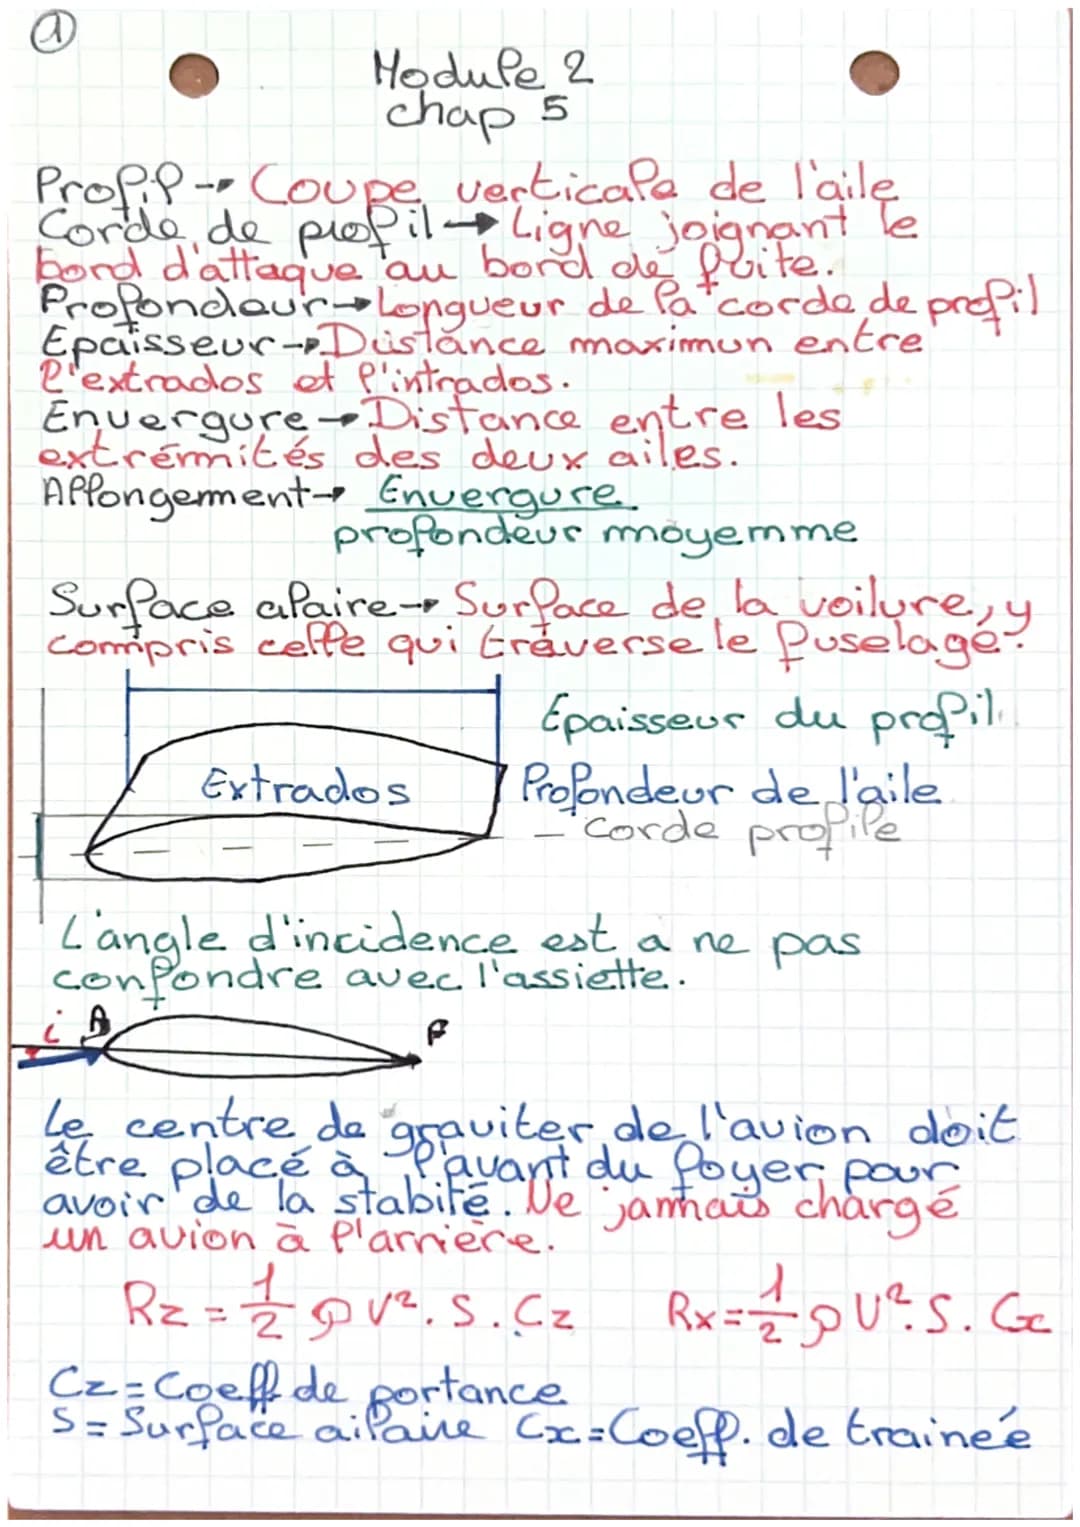 1
Module 2
chap 5
Profil → Coupe verticale de l'aile
Corde de profil → Ligne joignant le
bord d'attaque au bord de fuite.
Profondeur → Longueur de la corde de profil
Epaisseur → Distance maximun entre
l'extrados et l'intrados.
Envergure → Distance entre les
extrémités des deux ailes.
Allongement → Envergure
profondeur moyenne
Surface alaire → Surface de la voilure, y
compris celle qui traverse le fuselage.
Épaisseur du profil
Extrados
Profondeur de l'aile
- Corde profile
L'angle d'incidence est a ne pas
confondre avec l'assiette.
i A F
Le centre de graviter de l'avion doit
être placé à l'avant du foyer pour
avoir de la stabité. Ne jamais chargé
un avion à l'arrière.
Rz = 1/2 ρ V². S. Cz Rx = 1/2 ρ V². S. Cx
Cz = Coeff de portance
S = Surface ailaire Cx = Coeff. de trainée